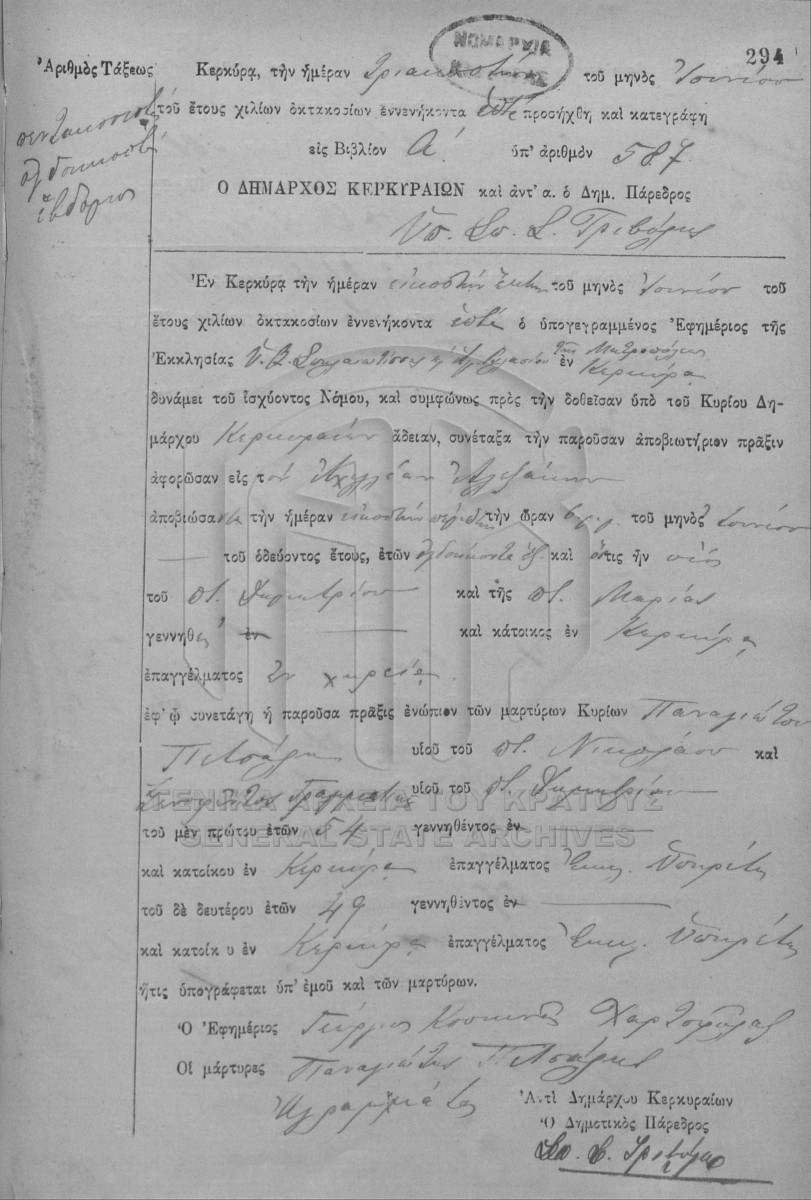 ΝΟΜΑΡΧΙΑ
294
Ἀριθμὸς Τάξεως
πεντακοσιοστὸς
ὀγδοηκοστὸς
ἕβδομος
Κερκύρα, τὴν ἡμέραν τοῦ μηνὸς Ἰουνίου
τοῦ ἔτους χιλίων ὀκτακοσίων ἐννενήκοντα ἑπτὰ προσήχθη καὶ κατεγράφη
εἰς Βιβλίον Α΄. ὑπ' ἀριθμὸν 587.
Ο ΔΗΜΑΡΧΟΣ ΚΕΡΚΥΡΑΙΩΝ καὶ ἀντ' α. ὁ Δημ. Πάρεδρος
Ὑπ. Σπ. Σ. Τριβόλης
Ἐν Κερκύρᾳ τὴν ἡμέραν εἰκοστὴν ἕκτην τοῦ μηνὸς Ἰουνίου τοῦ
ἔτους χιλίων ὀκτακοσίων ἐννενήκοντα ἑπτὰ ὁ ὑπογεγραμμένος Ἐφημέριος τῆς
Ἐκκλησίας Υ. Θ. Σπηλαιωτίσσης τῆς Μητροπόλεως ἐν Κερκύρᾳ
δυνάμει τοῦ ἰσχύοντος Νόμου, καὶ συμφώνως πρὸς τὴν δοθεῖσαν ὑπὸ τοῦ Κυρίου Δη-
μάρχου Κερκυραίων ἄδειαν, συνέταξα τὴν παροῦσαν ἀποβιωτήριον πρᾶξιν
ἀφορῶσαν εἰς τὸν Ἀχιλλέαν Ἀλεξάκην
ἀποβιώσαντα τὴν ἡμέραν εἰκοστὴν πέμπτην τὴν ὥραν τοῦ μηνὸς Ἰουνίου
τοῦ ὁδεύοντος ἔτους, ἐτῶν ὀγδοήκοντα ἓξ καὶ ὅστις ἦν υἱὸς
τοῦ πτ. Δημητρίου καὶ τῆς πτ. Μαρίας
γεννηθεὶς ἐν καὶ κάτοικος ἐν Κερκύρᾳ
ἐπαγγέλματος ἐν χηρείᾳ.
ἐφ' ᾧ συνετάγη ἡ παροῦσα πρᾶξις ἐνώπιον τῶν μαρτύρων Κυρίων Παναγιώτου
Πιτσάλη υἱοῦ τοῦ πτ. Νικολάου καὶ
υἱοῦ τοῦ πτ. Δημητρίου
ΓΕΝΙΚΑ ΑΡΧΕΙΑ ΤΟΥ ΚΡΑΤΟΥΣ
GENERAL STATE ARCHIVES
τοῦ μὲν πρώτου ἐτῶν 54 γεννηθέντος ἐν
καὶ κατοίκου ἐν Κερκύρᾳ ἐπαγγέλματος Ἐκκλ. Ὑπηρέτης
τοῦ δὲ δευτέρου ἐτῶν 49 γεννηθέντος ἐν
καὶ κατοίκ υ ἐν Κερκύρᾳ ἐπαγγέλματος Ἐκκλ. Ὑπηρέτης
ἥτις ὑπογράφεται ὑπ' ἐμοῦ καὶ τῶν μαρτύρων.
Ὁ Ἐφημέριος Γεώργιος Χαρτοφύλαξ
Οἱ μάρτυρες Παναγιώτης Πιτσάλης
Ἀγραμμάτος
Ἀντὶ Δημάρχου Κερκυραίων
Ὁ Δημοτικὸς Πάρεδρος
Σπ. Σ. Τριβόλης